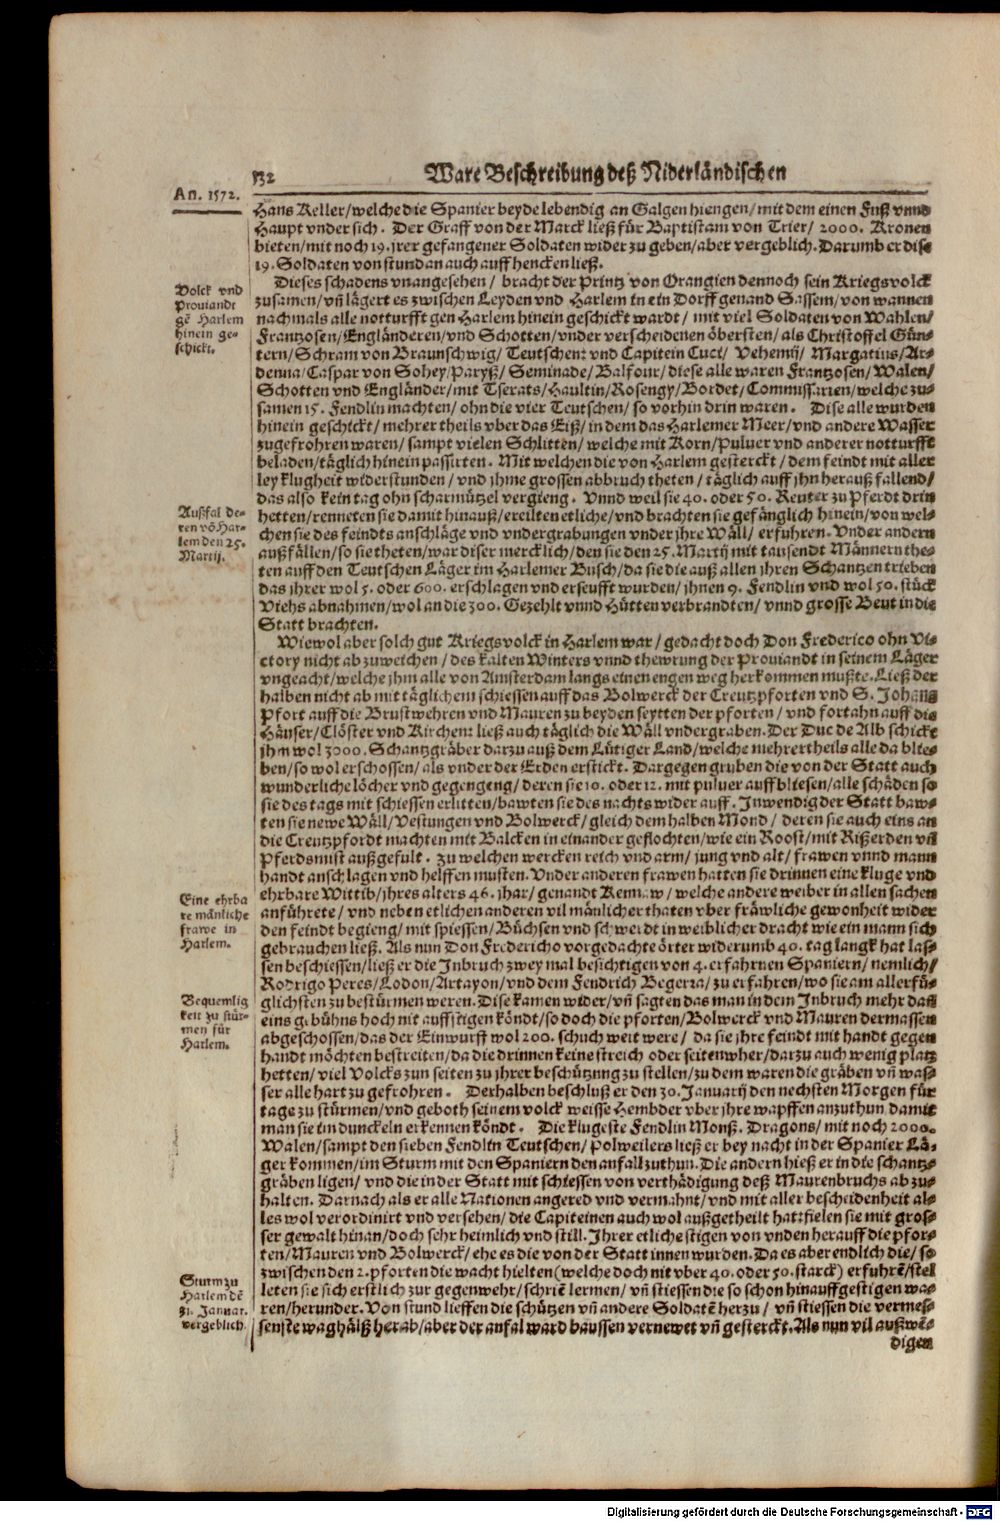 132 Ware Beschreibung deß Niderländischen
An. 1572.
Hans Keller/welche die Spanier beyde lebendig an Galgen hiengen/mit dem einen Fuß vnnd
Haupt vnder sich. Der Graff von der Marck ließ für Baptistam von Trier/ 2000. Kronen
bieten/mit noch 19.jrer gefangener Soldaten wider zu geben/aber vergeblich. Darumb er dise
19. Soldaten von stund an auch auff hencken ließ.
Dieses schadens vnangesehen/ bracht der Printz von Orangien dennoch sein Kriegsvolck
zusamen/vñ lägert es zwischen Leyden vnd Harlem in ein Dorff genand Sassem/von wannen
nachmals alle notturfft gen Harlem hinein geschickt wardt/ mit viel Soldaten von Wahlen/
Frantzosen/Engländeren/vnd Schotten/vnder verscheidenen öbersten/als Christoffel Gün-
tern/Schram von Braunschwig/ Teutschen: vnd Capitein Cuci/ Vehemij/ Margatius/Ar-
denna/Caspar von Sohey/Paryß/Seminade/Balfour/diese alle waren Frantzosen/Walen/
Schotten vnd Engländer/mit Tserats/Haultin/Rosengy/Bordet/Commissarien/welche zu-
samen 15. Fendlin machten/ ohn die vier Teutschen/so vorhin drin waren. Dise alle wurden
hinein geschickt/mehrer theils vber das Eiß/in dem das Harlemer Meer/vnd andere Wasser
zugefrohren waren/sampt vielen Schlitten/welche mit Korn/Puluer vnd anderer notturfft
beladen/täglich hinein passirten. Mit welchen die von Harlem gesterckt/dem feindt mit aller
ley klugheit widerstunden/vnd jhme grossen abbruch theten/täglich auff jhn herauß fallend/
das also kein tag ohn scharmützel vergieng. Vnnd weil sie 40. oder 50. Reuter zu Pferdt drin
hetten/renneten sie damit hinauß/ereilten etliche/vnd brachten sie gefänglich hinein/von wel-
chen sie des feindts anschläge vnd vndergrabungen vnder jhre Wäll/ erfuhren. Vnder andern
außfällen/so sie theten/war diser mercklich/den sie den 25. Martij mit tausendt Männern the-
ten auff den Teutschen Läger im Harlemer Busch/da sie die auß allen jhren Schantzen trieben
das jhrer wol 5. oder 600. erschlagen vnd erseufft wurden/jhnen 9. Fendlin vnd wol 50. stück
Viehs abnahmen/wol an die 300. Gezehlt vnnd Hütten verbrandten/vnnd grosse Beut in die
Statt brachten.
Wiewol aber solch gut Kriegsvolck in Harlem war/gedacht doch Don Frederico ohn Vi-
ctory nicht abzuweichen/des kalten Winters vnnd thewrung der Prouiandt in seinem Läger
vngeacht/welche jhm alle von Amsterdam langs einen engen weg herkommen mußte. Ließ der
halben nicht ab mit täglichem schiessen auff das Bolwerck der Creutzpforten vnd S. Johans
Pfort auff die Brustwehren vnd Mauren zu beyden seytten der pforten/vnd fortahn auff die
Häuser/Clöster vnd Kirchen: ließ auch täglich die Wäll vndergraben. Der Duc de Alb schickt
jhm wol 3000. Schantzgräber darzu auß dem Lütiger Land/welche mehrertheils alle da blie-
ben/so wol erschossen/als vnder der Erden erstickt. Dargegen gruben die von der Statt auch
wunderliche löcher vnd gegengeng/ deren sie 10. oder 12. mit puluer auffbliesen/alle schäden so
sie des tags mit schiessen erlitten/bawten sie des nachts wider auff. Inwendig der Statt baw-
ten sie newe Wäll/Vestungen vnd Bolwerck/gleich dem halben Mond/ deren sie auch eins an
die Creutzpfordt machten mit Balcken in einander geflochten/wie ein Roost/mit Rißerden vñ
Pferdsmist außgefult. zu welchen wercken reich vnd arm/jung vnd alt/frawen vnnd mann
handt anschlagen vnd helffen musten. Vnder anderen frawen hatten sie drinnen eine kluge vnd
ehrbare Wittib/jhres alters 46. jhar/genandt Kennaw/welche andere weiber in allen sachen
anführete/vnd neben etlichen anderen vil mänlicher thaten vber fräwliche gewonheit wider
den feindt begieng/mit spiessen/Büchsen vnd schwerdt in weiblicher dracht wie ein mann sich
gebrauchen ließ. Als nun Don Fredericho vorgedachte örter widerumb 40. tag langk hat las-
sen beschiessen/ließ er die Inbruch zwey mal besichtigen von 4. erfahrnen Spaniern/nemlich/
Rodrigo Peres/Lodon/Artayon/vnd dem Fendrich Begerra/zu erfahren/wo sie am allerfü-
glichsten zu bestürmen weren. Dise kamen wider/vñ sagten das man in dem Inbruch mehr dañ
eins gebühns hoch nit auffstigen köndt/so doch die pforten/Bolwerck vnd Mauren dermassen
abgeschossen/das der Einwurff wol 200. schuch weit were/ da sie jhre feindt mit handt gegen
handt möchten bestreiten/da die drinnen keine streich oder seitenwher/darzu auch wenig platz
hetten/viel Volcks zun seiten zu jhrer beschützung zu stellen/zu dem waren die gräben vñ was-
ser alle hart zu gefrohren. Derhalben beschluß er den 30. Januarij den nechsten Morgen für
tage zu stürmen/vnd geboth seinem volck weisse Hembder vber jhre wapffen anzuthun damit
man sie im dunckeln erkennen köndt. Die klugeste Fendlin Monß. Dragons/mit noch 2000.
Walen/sampt den sieben Fendlin Teutschen/Polweilers ließ er bey nacht in der Spanier Lä-
ger kommen/im Sturm mit den Spaniern den anfall zuthun. Die andern hieß er in die schantz-
gräben ligen/vnd die in der Statt mit schiessen von verthädigung deß Maurenbruchs ab zu-
halten. Darnach als er alle Nationen angered vnd vermahnt/vnd mit aller bescheidenheit al-
les wol verordinirt vnd versehen/die Capiteinen auch wol außgetheilt hat: fielen sie mit gros-
ser gewalt hinan/doch sehr heimlich vnd still. Ihrer etliche stigen von vnden herauff die pfor-
ten/Mauren vnd Bolwerck/ehe es die von der Statt innen wurden. Da es aber endlich die/so
zwischen den 2. pforten die wacht hielten (welche doch nit vber 40. oder 50. starck) erfuhrẽ/stel
leten sie sich erstlich zur gegenwehr/schriẽ lermen/vñ stiessen die so schon hinauffgestigen wa-
ren/herunder. Von stund lieffen die schützen vñ andere Soldatẽ herzu/ vñ stiessen die vermes-
senste waghälß herab/aber der anfal ward daussen vernewet vñ gesterckt. Als nun vil außwẽ-
digen
Volck vnd
Prouiandt
gẽ Harlem
hinein ge-
schickt.
Außfal de-
ren võ Har-
lem den 25.
Martij.
Eine ehrba
re mänliche
frawe in
Harlem.
Bequemlig
keit zu stür-
men für
Harlem.
Sturm zu
Harlem dẽ
31. Januar.
vergeblich.
Digitalisierung gefördert durch die Deutsche Forschungsgemeinschaft - DFG